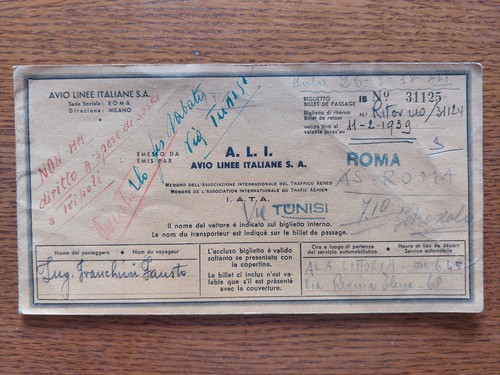 AVIO LINEE ITALIANE S.A.
Sede Sociale: ROMA
Direzione: MILANO
NON HA
diritto a spese di sosta
a Tripoli
sabato
via Tunisi
EMESSO DA
EMIS PAR
A. L. I.
AVIO LINEE ITALIANE S. A.
MEMBRO DELL'ASSOCIAZIONE INTERNAZIONALE DEL TRAFFICO AEREO
MEMBRE DE L'ASSOCIATION INTERNATIONALE DU TRAFIC AÉRIEN
I. A. T. A.
Il nome del vettore è indicato sul biglietto interno.
Le nom du transporteur est indiqué sur le billet de passage.
BIGLIETTO
BILLET DE PASSAGE
IB Nº 31125
Biglietto di ritorno
Billet de retour
N. Ritorno/31124
valido fino al
valable jusqu'au
11-2-1939
S
ROMA
AS ROMA
Via TUNISI
710
Nome del passeggero
Nom du voyageur
Ing. Franchini Fausto
L'accluso biglietto è valido
soltanto se presentato con
la copertina.
Le billet ci inclus n'est va-
lable que s'il est présenté
avec la couverture.
Ora e luogo di partenza
del servizio automobilistico
Heure et lieu de départ
Service automobile
ALA LITTORIA 6.45
Via Regina Elena - 68